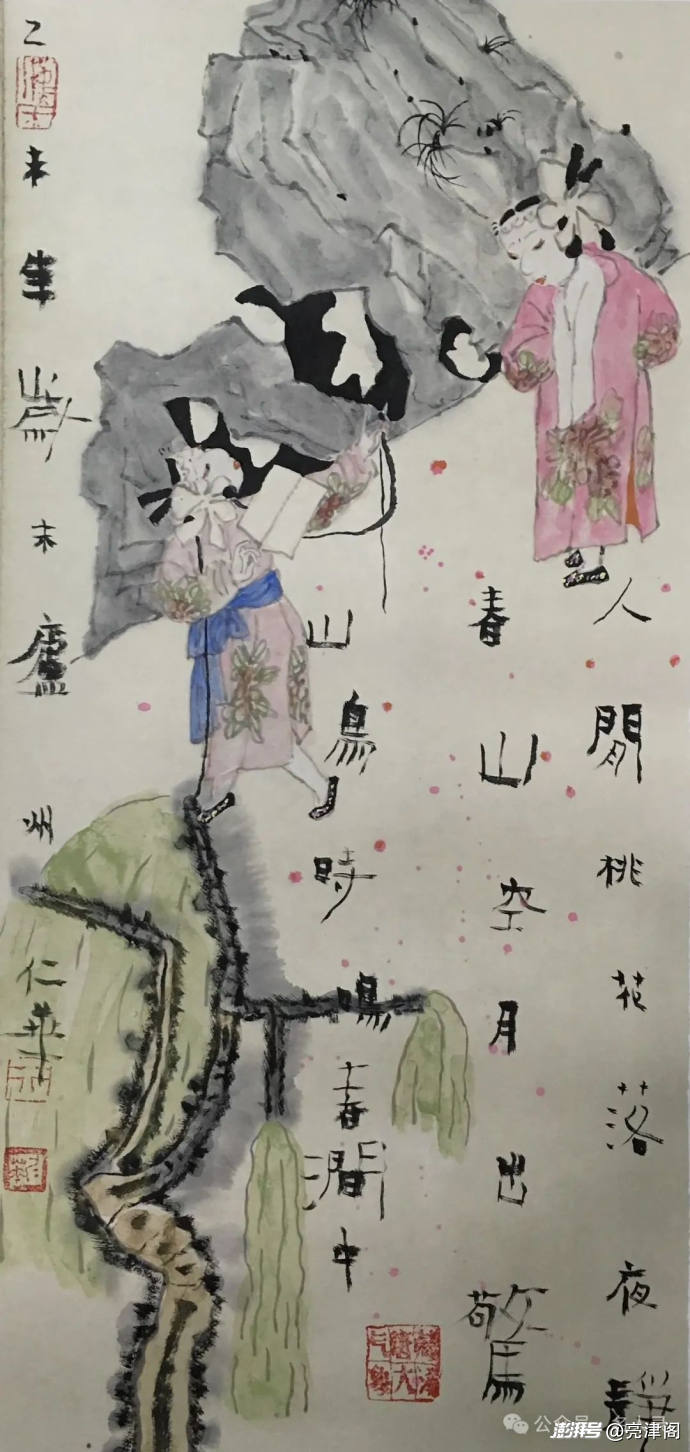 人閒桃花落夜靜
春山空月出驚
山鳥時鳴春澗中
乙未年歲末廬州仁華
公众号
澎湃号 @亮津阁